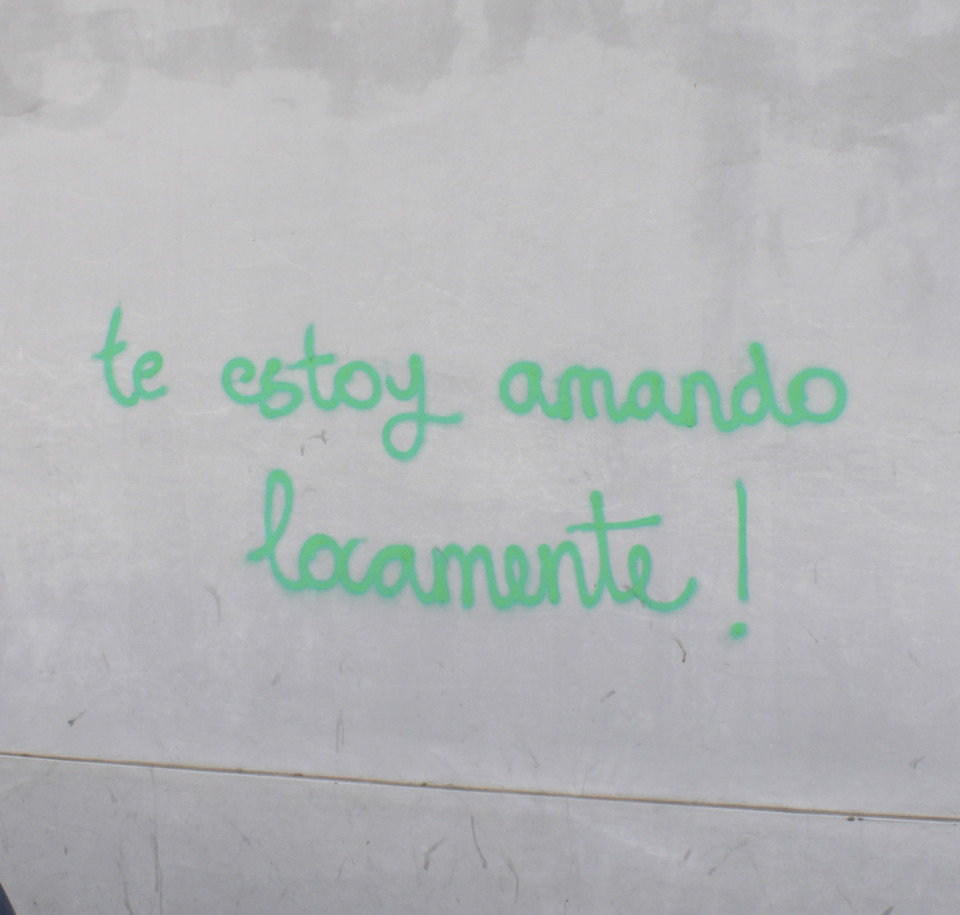 te estoy amando
locamente!